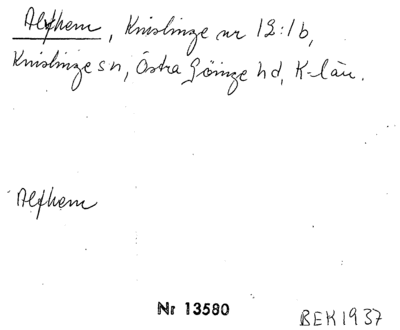 Alfhem, Knislinge nr 12:1b,
Knislinge sn, Östra Göinge hd, K-län.
Alfhem
Nr 13580
BEK1937